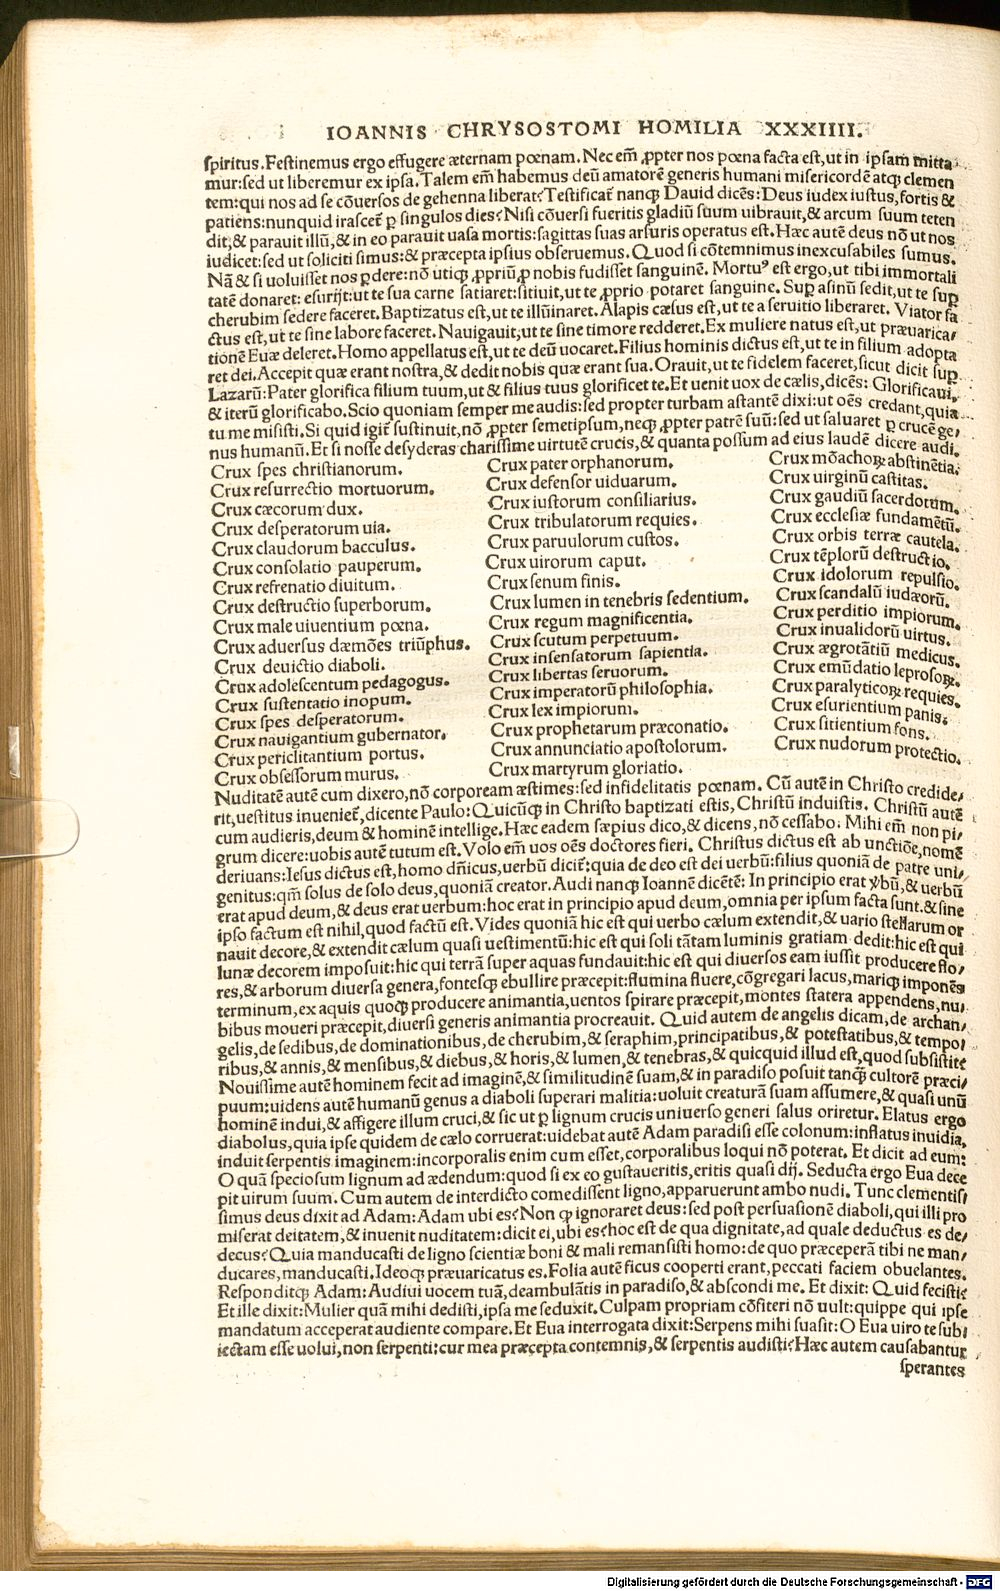 IOANNIS CHRYSOSTOMI HOMILIA XXXIIII.
spiritus. Festinemus ergo effugere æternam pœnam. Nec em̄ ꝓpter nos pœna facta est, ut in ipsam mitta
mur: sed ut liberemur ex ipsa. Talem em̄ habemus deū amatorē generis humani misericordē atq; clemen
tem: qui nos ad se cōuersos de gehenna liberat? Testificat̄ nanq; Dauid dicēs: Deus iudex iustus, fortis &
patiens: nunquid irascet̄ ꝑ singulos dies? Nisi cōuersi fueritis gladiū suum uibrauit, & arcum suum teten
dit, & parauit illū, & in eo parauit uasa mortis: sagittas suas arsuris operatus est. Hæc autē deus nō ut nos
iudicet: sed ut soliciti simus: & præcepta ipsius obseruemus. Quod si cōtemnimus inexcusabiles sumus.
Nā & si uoluisset nos ꝑdere: nō utiq; ꝓpriū ꝓ nobis fudisset sanguinē. Mortuꝰ est ergo, ut tibi immortali
tatē donaret: esurijt: ut te sua carne satiaret: sitiuit, ut te ꝓprio potaret sanguine. Suꝑ asinū sedit, ut te suꝑ
cherubim sedere faceret. Baptizatus est, ut te illūinaret. Alapis cæsus est, ut te a seruitio liberaret. Viator fa
ctus est, ut te sine labore faceret. Nauigauit, ut te sine timore redderet. Ex muliere natus est, ut præuarica/
tionē Euæ deleret. Homo appellatus est, ut te deū uocaret. Filius hominis dictus est, ut te in filium adopta
ret dei. Accepit quæ erant nostra, & dedit nobis quæ erant sua. Orauit, ut te fidelem faceret, sicut dicit suꝑ
Lazarū: Pater glorifica filium tuum, ut & filius tuus glorificet te. Et uenit uox de cælis, dicēs: Glorificaui,
& iterū glorificabo. Scio quoniam semper me audis: sed propter turbam astantē dixi: ut oēs credant, quia
tu me misisti. Si quid igit̄ sustinuit, nō ꝓpter semetipsum, neq; ꝓpter patrē suū: sed ut saluaret ꝑ crucē ge/
nus humanū. Et si nosse desyderas charissime uirtutē crucis, & quanta possum ad eius laudē dicere audi.
Crux spes christianorum.
Crux resurrectio mortuorum.
Crux cæcorum dux.
Crux desperatorum uia.
Crux claudorum bacculus.
Crux consolatio pauperum.
Crux refrenatio diuitum.
Crux destructio superborum.
Crux male uiuentium pœna.
Crux aduersus dæmōes triūphus.
Crux deuictio diaboli.
Crux adolescentum pedagogus.
Crux sustentatio inopum.
Crux spes desperatorum.
Crux nauigantium gubernator.
Crux periclitantium portus.
Crux obsessorum murus.
Crux pater orphanorum.
Crux defensor uiduarum.
Crux iustorum consiliarius.
Crux tribulatorum requies.
Crux paruulorum custos.
Crux uirorum caput.
Crux senum finis.
Crux lumen in tenebris sedentium.
Crux regum magnificentia.
Crux scutum perpetuum.
Crux insensatorum sapientia.
Crux libertas seruorum.
Crux imperatorū philosophia.
Crux lex impiorum.
Crux prophetarum præconatio.
Crux annunciatio apostolorum.
Crux martyrum gloriatio.
Crux mōachoꝝ abstinētia.
Crux uirginū castitas.
Crux gaudiū sacerdotum.
Crux ecclesiæ fundamētū.
Crux orbis terræ cautela.
Crux tēplorū destructio.
Crux idolorum repulsio.
Crux scandalū iudæorū.
Crux perditio impiorum.
Crux inualidorū uirtus.
Crux ægrotātiū medicus.
Crux emūdatio leprosoꝝ.
Crux paralyticoꝝ requies.
Crux esurientium panis.
Crux sitientium fons.
Crux nudorum protectio.
Nuditatē autē cum dixero, nō corpoream æstimes: sed infidelitatis pœnam. Cū autē in Christo credide/
rit, uestitus inueniet̄, dicente Paulo: Quicūq; in Christo baptizati estis, Christū induistis. Christū autē
cum audieris, deum & hominē intellige. Hæc eadem sæpius dico, & dicens, nō cessabo. Mihi em̄ non pi/
grum dicere: uobis autē tutum est. Volo em̄ uos oēs doctores fieri. Christus dictus est ab unctiōe, nomē
deriuans: Iesus dictus est, homo dn̄icus, uerbū dicit̄: quia de deo est dei uerbū: filius quoniā de patre uni/
genitus: qm̄ solus de solo deus, quoniā creator. Audi nanq; Ioannē dicētē: In principio erat ỽbū, & uerbū
erat apud deum, & deus erat uerbum: hoc erat in principio apud deum, omnia per ipsum facta sunt. & sine
ipso factum est nihil, quod factū est. Vides quoniā hic est qui uerbo cælum extendit, & uario stellarum or
nauit decore, & extendit cælum quasi uestimentū: hic est qui soli tātam luminis gratiam dedit: hic est qui
lunæ decorem imposuit: hic qui terrā super aquas fundauit: hic est qui diuersos eam iussit producere flo/
res, & arborum diuersa genera, fontesq; ebullire præcepit: flumina fluere, cōgregari lacus, mariq; imponēs
terminum, ex aquis quoq; producere animantia, uentos spirare præcepit, montes statera appendens, nu/
bibus moueri præcepit, diuersi generis animantia procreauit. Quid autem de angelis dicam, de archan/
gelis, de sedibus, de dominationibus, de cherubim, & seraphim, principatibus, & potestatibus, & tempo/
ribus, & annis, & mensibus, & diebus, & horis, & lumen, & tenebras, & quicquid illud est, quod subsistit?
Nouissime autē hominem fecit ad imaginē, & similitudinē suam, & in paradiso posuit tanq̄ cultorē præci/
puum: uidens autē humanū genus a diaboli superari malitia: uoluit creaturā suam assumere, & quasi unū
hominē indui, & affigere illum cruci, & sic ut ꝑ lignum crucis uniuerso generi salus oriretur. Elatus ergo
diabolus, quia ipse quidem de cælo corruerat: uidebat autē Adam paradisi esse colonum: inflatus inuidia,
induit serpentis imaginem: incorporalis enim cum esset, corporalibus loqui nō poterat. Et dicit ad eum:
O quā speciosum lignum ad ædendum: quod si ex eo gustaueritis, eritis quasi dij. Seducta ergo Eua dece
pit uirum suum. Cum autem de interdicto comedissent ligno, apparuerunt ambo nudi. Tunc clementis/
simus deus dixit ad Adam: Adam ubi es? Non ꝙ ignoraret deus: sed post persuasionē diaboli, qui illi pro
miserat deitatem, & inuenit nuditatem: dicit ei, ubi es? hoc est de qua dignitate, ad quale deductus es de/
decus? Quia manducasti de ligno scientiæ boni & mali remansisti homo: de quo præceperā tibi ne man/
ducares, manducasti. Ideoq; præuaricatus es. Folia autē ficus cooperti erant, peccati faciem obuelantes.
Responditq; Adam: Audiui uocem tuā, deambulātis in paradiso, & abscondi me. Et dixit: Quid fecisti?
Et ille dixit: Mulier quā mihi dedisti, ipsa me seduxit. Culpam propriam cōfiteri nō uult: quippe qui ipse
mandatum acceperat audiente compare. Et Eua interrogata dixit: Serpens mihi suasit: O Eua uiro te sub/
iectam esse uolui, non serpenti: cur mea præcepta contemnis, & serpentis audisti? Hæc autem causabantur
sperantes
Digitalisierung gefördert durch die Deutsche Forschungsgemeinschaft - DFG